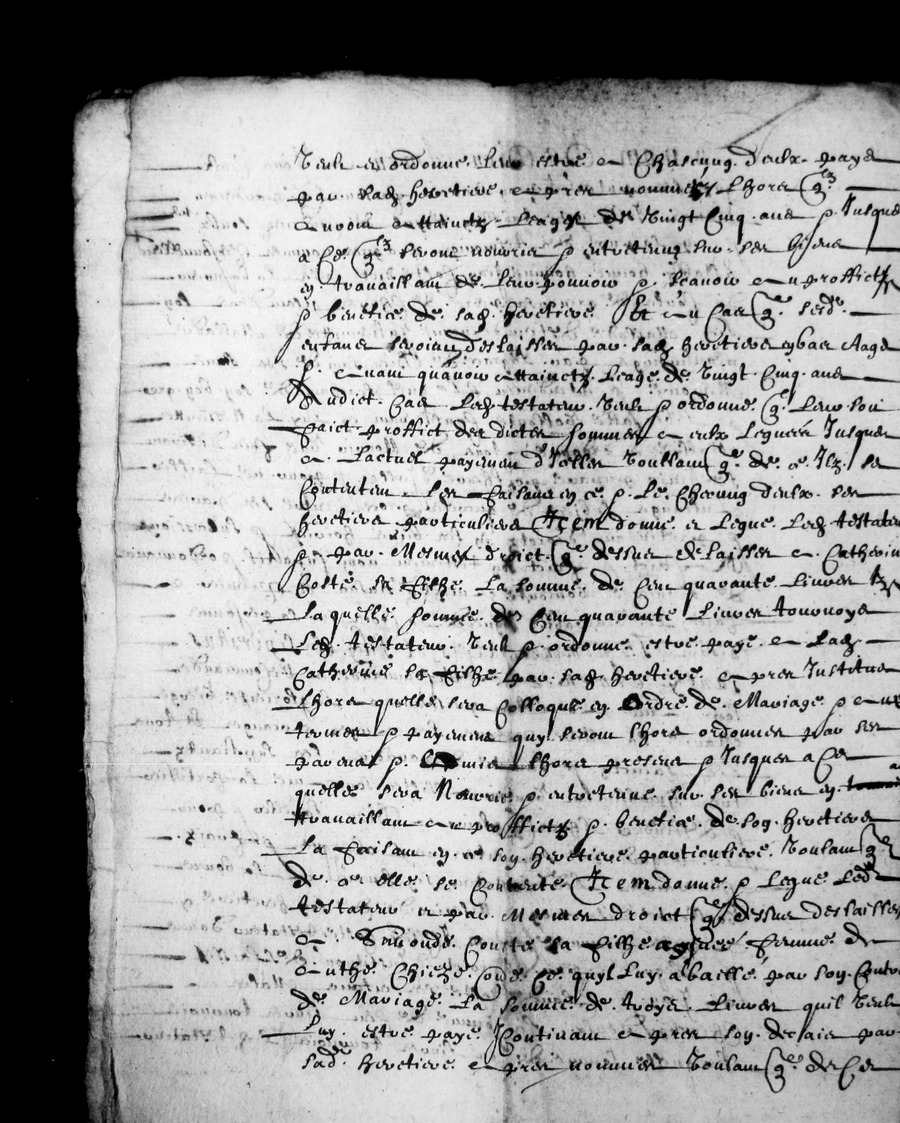 Veult et ordonne leur estre a Chascung deulx paye
par sad heretiere apres nommee lhors q ilz
auront attainctz leage de Vingt Cinq ans & Jusques
a Ce q ilz seront nourris & entretenus sur ses biens
en travaillant de leur pouvoir & scavoir au proffict
& benefice de sad heretiere Et au Cas q sesd
enfans seroint deslaisses par sad heretiere
& avant quavoir attainctz leage de Vingt Cinq ans
Audict Cas led testateur Veult & ordonne q leur soit
faict proffict des dictes sommes a eulx leguees Jusques
a lactuel payement dIcelles Voullant q de ce Ilz se
Contentent les faisant en ce & Le Chescung deulx ses
heretiers particuliers Item donne et Legue Led testateur
& par Mesmes droict q dessus delaisser a Catherine
Coste sa filhe La somme de Cent quarante Livres tz
Laquelle somme de Cent quarante Livres tournoys
Led testateur Veult & ordonne estre paye a Lad
Catherine sa filhe par sad heretiere apres Institue
Lhors quelle sera Colloquee en Ordre de Mariage & aux
termes & payemens quy seront lhors ordonnes par ses
parens & amis lhors presens & Jusques a Ce
quelle sera Nourrie & entretenue sur ses biens en
travaillant au proffictz & benefice de son heretiere
La faisant en ce son heretiere particuliere Voulant q
de ce elle se Contente Item donne & Legue Led
testateur et par Mesmes droict q dessus deslaisser
a Coste sa filhe femme de
Chieze Ce quyl Luy a baille par son Contra
de Mariage La somme de troys Livres quil Veult
Luy estre paye Continant apres son deces par
sad heretiere apres nommee Voulant q de Ce